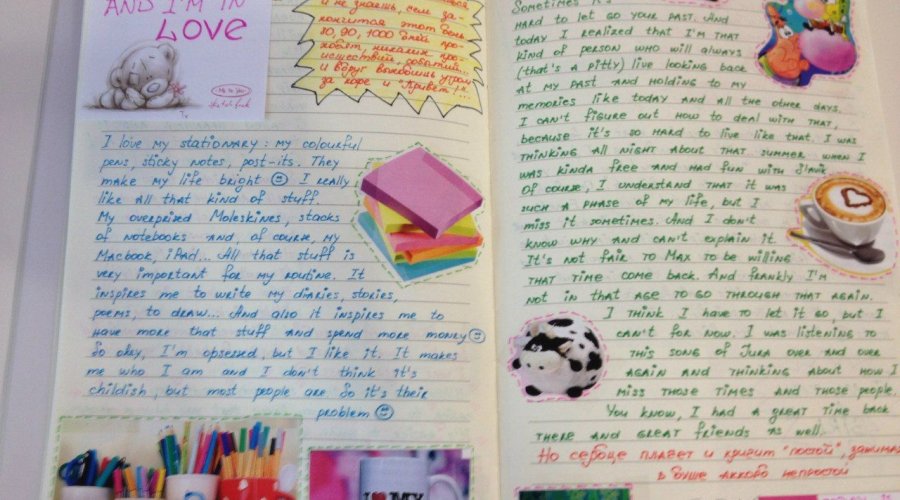 AND I'M IN
LOVE
Me to you
и не знаешь, если за-
кончится этот день
80, 90, 1000 дней про-
ходят, никаких про-
исшествий, событий...
и вдруг выходишь утром
за кофе и "Привет!...
I love my stationary: my colourful
pens, sticky notes, post-its. They
make my life bright ☺ I really
like all that kind of stuff.
My overprized Moleskines, stacks
of notebooks and, of course, my
Macbook, iPad... All that stuff is
very important for my routine. It
inspires me to write my diaries, stories,
poems, to draw... And also it inspires me to
have more that stuff and spend more money ☺
So okey, I'm obsesed, but I like it. It makes
me who I am and I don't think it's
childish, but most people are. So it's their
problem ☺
I ♥ MY
Sometimes it's
hard to let go your past. And
today I realized that I'm that
kind of person who will always
(that's a pitty) live looking back
at my past and holding to my
memories like today and all the other days.
I can't figure out how to deal with that,
because it's so hard to live like that. I was
thinking all night about that summer when I
was kinda free and had fun with
Of course, I understand that it was
such a phase of my life, but I
miss it sometimes. And I don't
know why and can't explain it.
It's not fair to Max to be willing
that time come back. And frankly I'm
not in that age to go through that again.
I think I have to let it go, but I
can't for now. I was listening to
this song of Jura over and over
again and thinking about how I
miss those times and those people.
You know, I had a great time back
there and great friends as well.
Но сердце плачет и кричит "постой",
в душе аккорд непростой